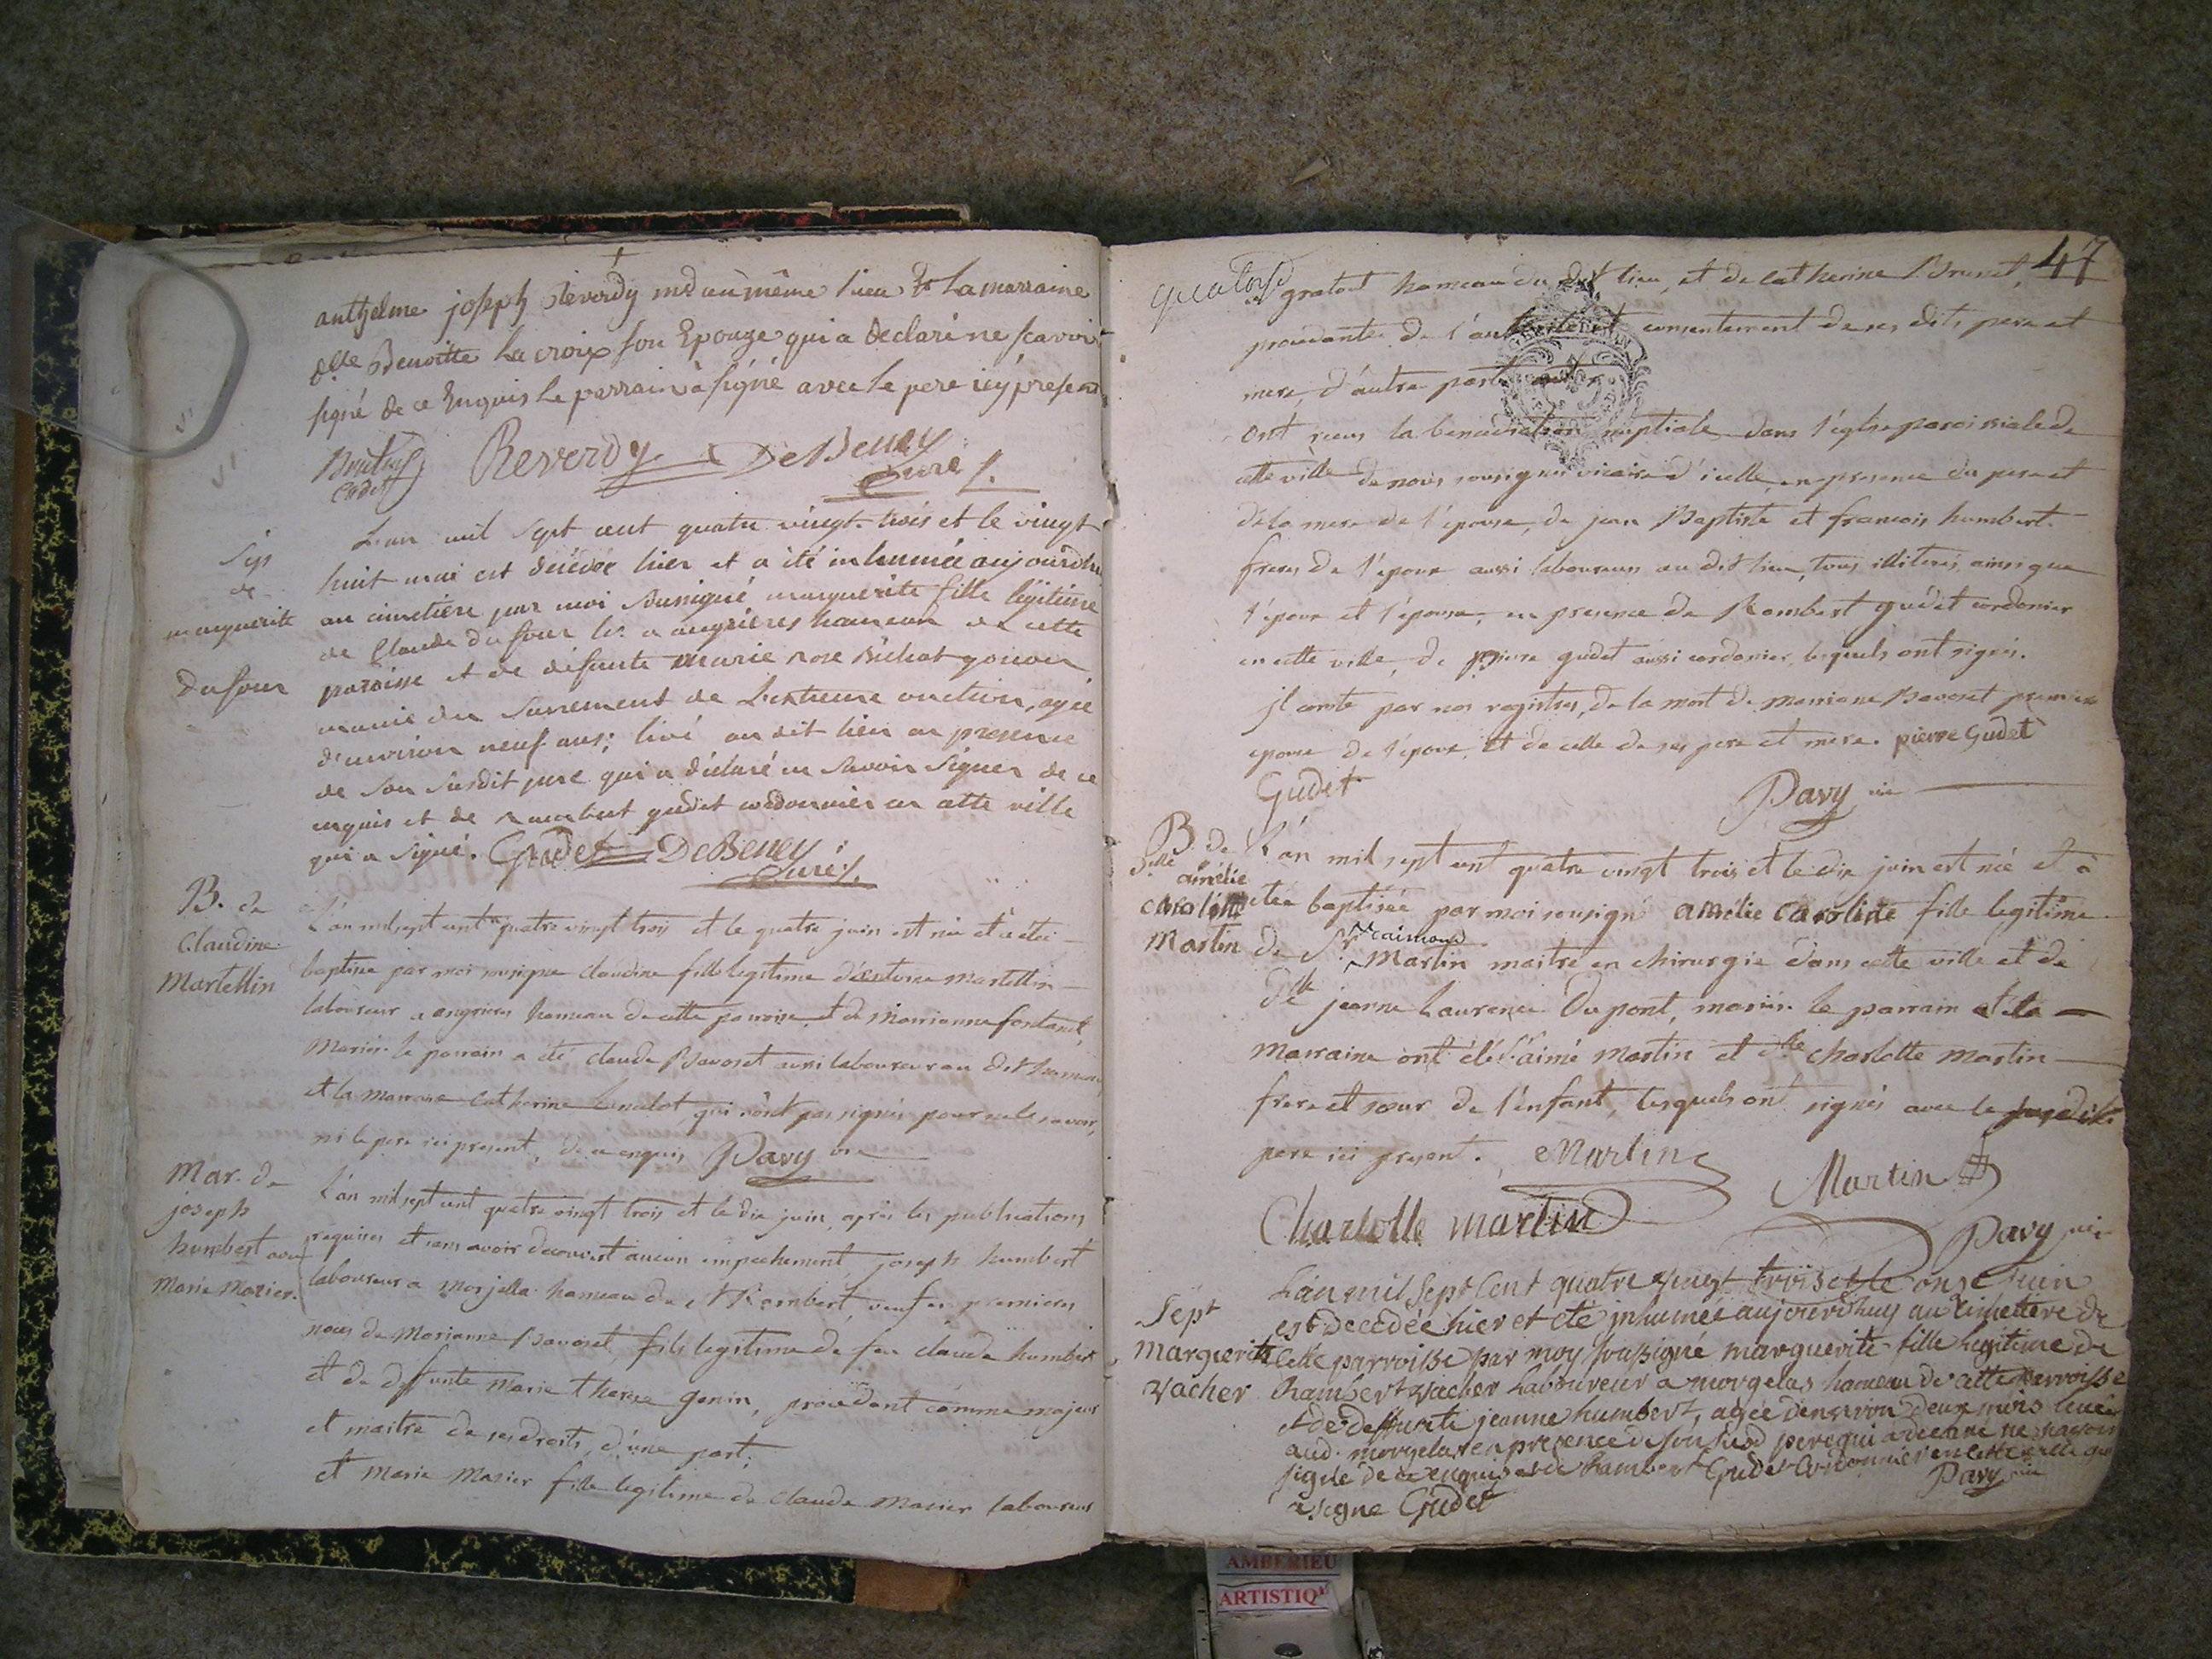 anthelme joseph Reverdy md au même lieu et La marraine
dlle Benoitte La croix son Epouze qui a declaré ne scavoir
signé de ce Enquis le parrain à signé avec le pere icy present
cadet Reverdy DeBeney
curé
Sep
de
marguerite
Dufour
L'an mil sept cent quatre vingt trois et le vingt
huit mai est décédée hier et a été inhumée aujourdhui
au cimetière par moi soussigné marguerite fille légitime
de Claude Dufour lr a angrieres hameau de cette
paroisse et de défunte Marie rose
munie du sacrement de L'extreme onction, agée
d'environ neuf ans; livé au dit lieu en presence
de son susdit pere qui a déclaré ne savoir signer de ce
enquis et de rambert gudet cordonnier en cette ville
qui a signé. Gudet DeBeney
curé
B. de
Claudine
Martellin
L'an mil sept cent quatre vingt trois et le quatre juin est née et a étée
baptisée par moi sousigné claudine fille legitime d'antoine martellin
laboureur a angrieres hameau de cette paroisse et de marianne fontanet
mariés. le parrain a été claude Bavoset aussi laboureur au dit hameau
et la marraine catherine qui n'ont pas signés pour ne le savoir,
ni le pere ici present, de ce enquis Pavy vic
Mar. de
joseph
humbert avec
Marie Marier.
L'an mil sept cent quatre vingt trois et le dix juin, après les publications
requises et sans avoir decouvert aucun empechement joseph humbert
laboureur a morjella hameau de st Rambert, veuf en premieres
noces de Marianne Bavoset, fils legitime de feu claude humbert
et de deffunte Marie therese genin, procedant comme majeur
et maitre de ses droits, d'une part;
et Marie Marier fille legitime de claude Marier laboureur
quatorse 47
gratout hameau du dit lieu, et de catherine Brunet,
procedante de l'autorité et consentement de ses dits pere et
mere, d'autre part
ont recus la benediction nuptiale dans l'église paroissiale de
cette ville de nous sousigner vicaire d'icelle, en presence du pere et
de la mere de l'epouse, de jean Baptiste et francois humbert
freres de l'epoux aussi laboureurs au dit lieu, tous illiterés, ainsi que
l'epoux et l'epouse, en presence de Rambert gudet cordonier
en cette ville, de pierre gudet aussi cordonier, lesquels ont signés.
il conste par nos registres, de la mort de marriane Bavoset premiere
epouse de l'epoux, et de celle de ses pere et mere. pierre Gudet
Gudet Pavy vic
B. de
Delle
amélie
caroline
Martin
L'an mil sept cent quatre vingt trois et le dix juin est née et à
étée baptisée par moi sousigné amélie caroline fille legitime
de Sr raimond Martin maitre en chirurgie dans cette ville et de
Dlle jeanne Laurence Dupont, mariés. le parrain et la
marraine ont été l'aimé Martin et dlle charlotte martin
frere et sœur de l'enfant, lesquels ont signés avec le susdit
pere ici present. Martin Martin
Charlotte martin Pavy vic
Sept
Marguerite
vacher
L'an mil sept Cent quatre vingt trois et le onse juin
est decedée hier et été inhumée aujourdhuy au cimetiere de
cette parroisse par moy soussigné marguerite fille legitime de
Rambert vacher laboureur a morgelas hameau de cette parroisse
et de deffunte jeanne humbert, agée d'environ deux mois
aud. morgelas en presence de son susd pere qui a declaré ne savoir
signé de ce enquis et de Rambert Gudet cordonnier en cette ville qui
a signe Gudet Pavy vic
AMBERIEU
ARTISTIQ